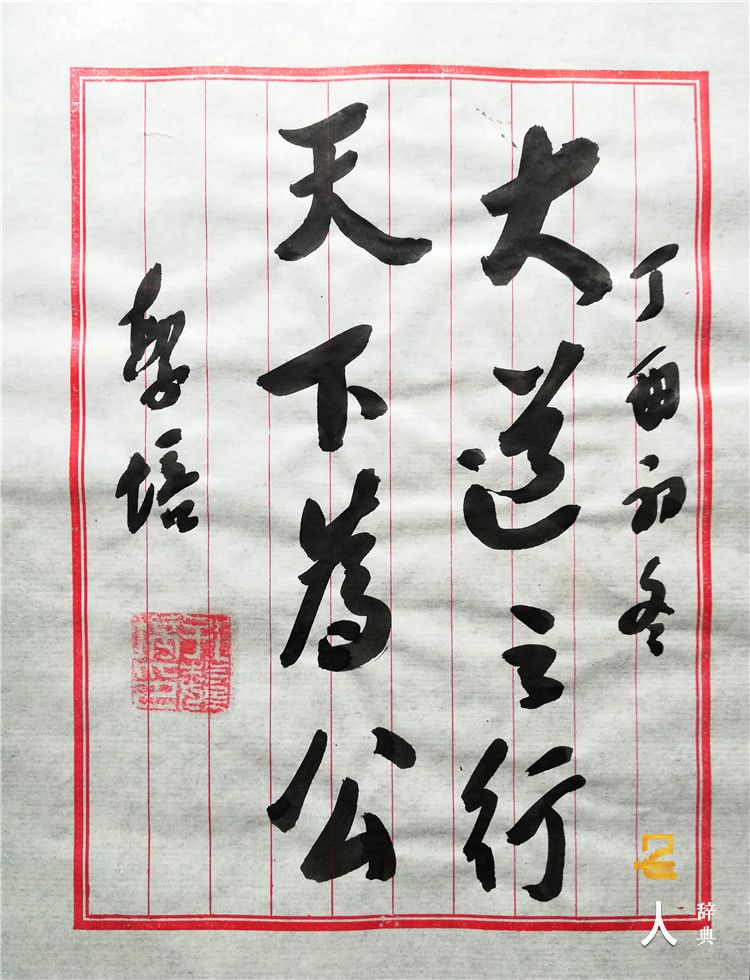 丁酉初冬
大道之行
天下為公
人
辞典